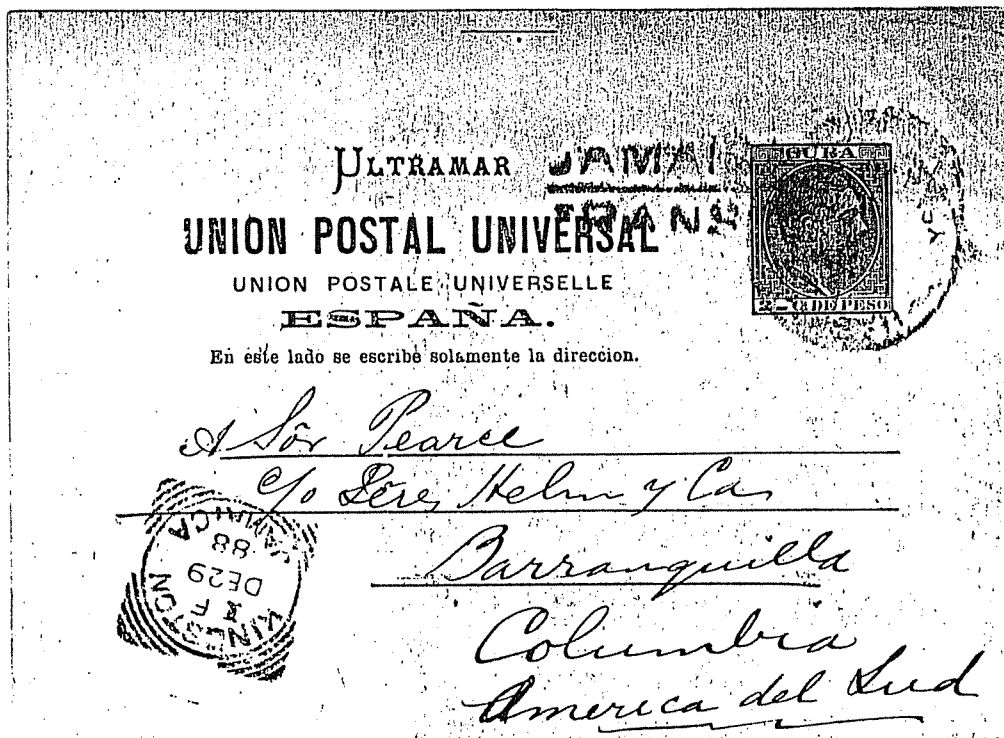 ULTRAMAR
JAMAI
TRANS
CUBA
UNION POSTAL UNIVERSAL
UNION POSTALE UNIVERSELLE
2 - C. DE PESO
ESPAÑA.
En este lado se escribe solamente la direccion.
A Sôr Pearce
c/o Helm y Ca
Barranquilla
Columbia
America del Sud
KINGSTON
F
DE 29
88
JAMAICA